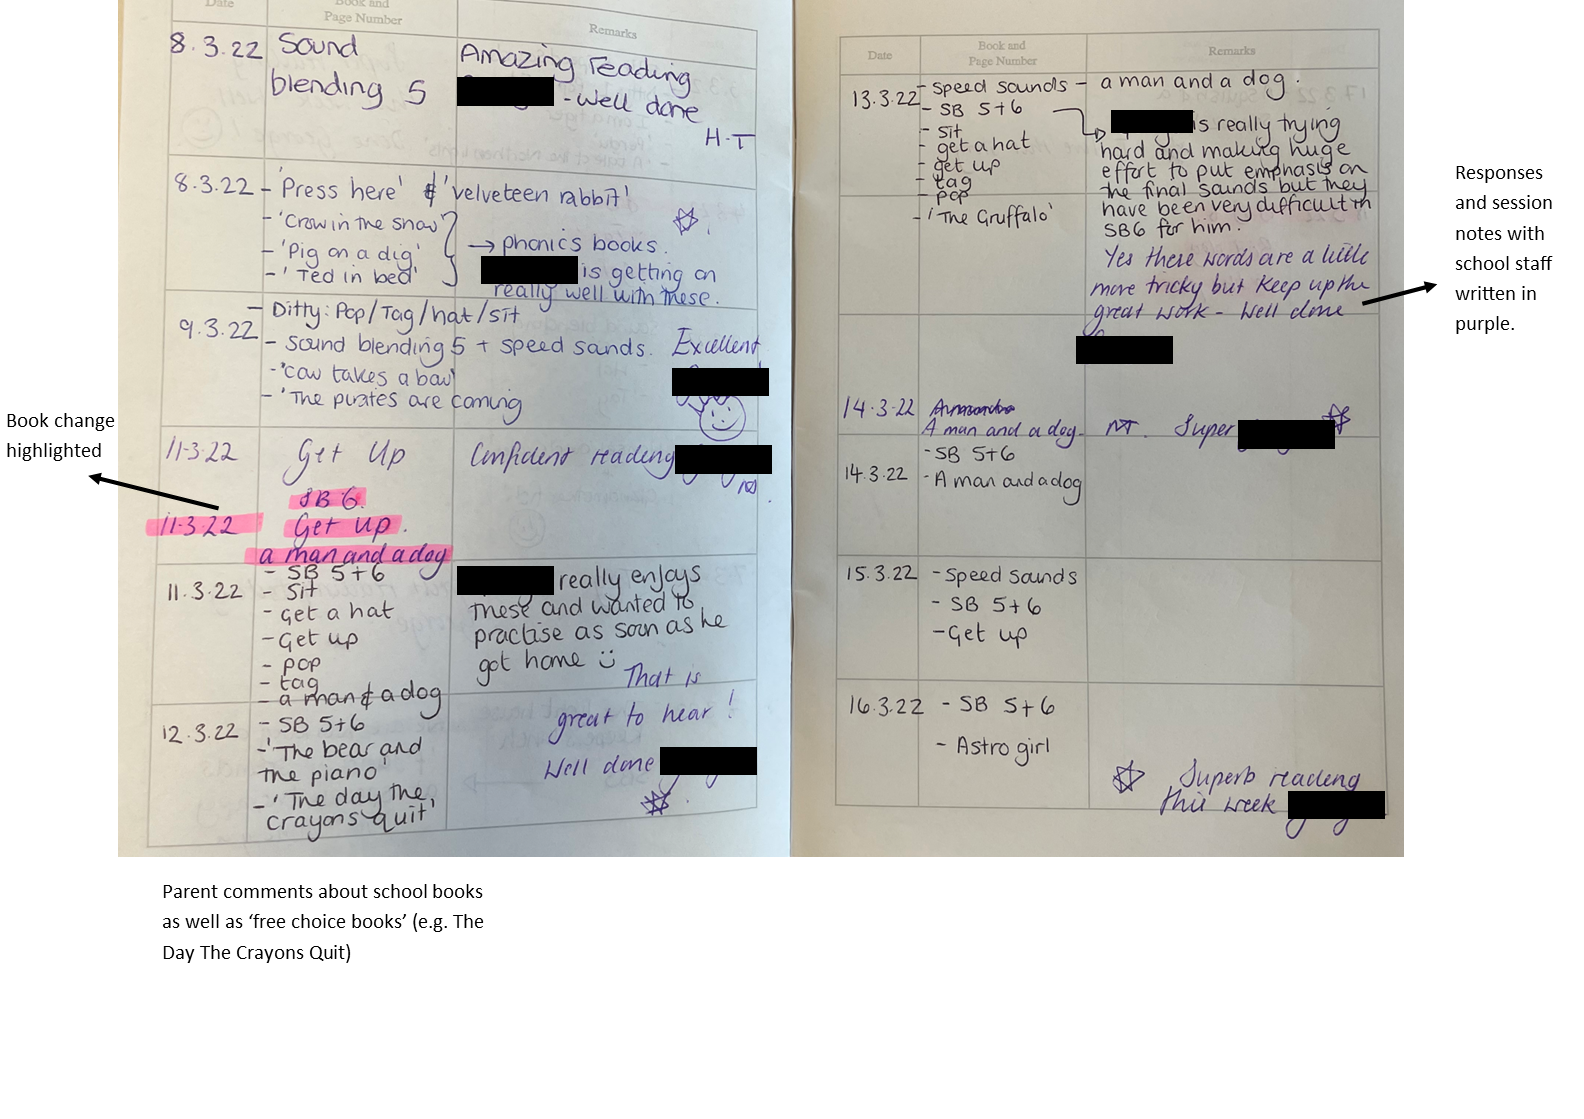 Date
Book and
Page Number
Remarks
8.3.22
Sound
blending 5
Amazing reading
- Well done
H.T
8.3.22
- 'Press here' & 'velveteen rabbit'
- 'Crow in the snow'
- 'Pig on a dig'
- 'Ted in bed'
→ phonics books.
is getting on
really well with these.
9.3.22
- Ditty: Pop/Tag/hat/sit
- Sound blending 5 + speed sounds.
- 'Cow takes a bow'
- 'The pirates are coming
Excellent
11.3.22
Get Up
Confident reading
SB 6.
11.3.22
Get up.
a man and a dog
11.3.22
- SB 5+6
- Sit
- get a hat
- Get up
- pop
- tag
- a man & a dog
really enjoys
these and wanted to
practise as soon as he
got home
That is
great to hear!
Well done
12.3.22
- SB 5+6
- 'The bear and
the piano'
- 'The day the
crayons quit'
Date
Book and
Page Number
Remarks
13.3.22
- Speed sounds - a man and a dog.
- SB 5+6
- Sit
- get a hat
- get up
- tag
- pop
- 'The Gruffalo'
is really trying
hard and making huge
effort to put emphasis on
the final sounds but they
have been very difficult in
SB6 for him.
Yes these words are a little
more tricky but keep up the
great work - Well done
14.3.22
A man and a dog.
Super
14.3.22
- SB 5+6
- A man and a dog
15.3.22
- Speed sounds
- SB 5+6
- Get up
16.3.22
- SB 5+6
- Astro girl
Superb reading
this week
Book change
highlighted
Responses
and session
notes with
school staff
written in
purple.
Parent comments about school books
as well as 'free choice books' (e.g. The
Day The Crayons Quit)